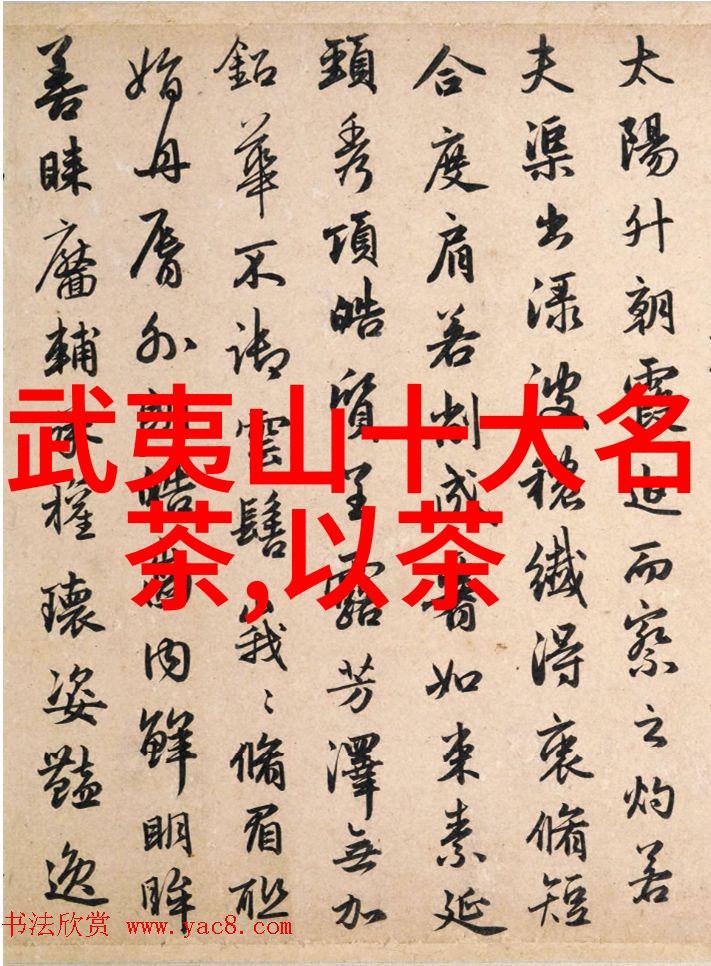 太陽升朝霞迫而察之灼若
夫渠出渌波穠纖得衷脩短
合度肩若削成如束素延
頸秀項皓質呈露芳澤無加
鉛華不御雲髻峩〻脩眉聯
娟丹脣外朗皓齒内鮮明眸
善睞靨輔承權瓌姿豔逸
武夷山十大名
茶,以茶
书法欣赏 www.yac8.com